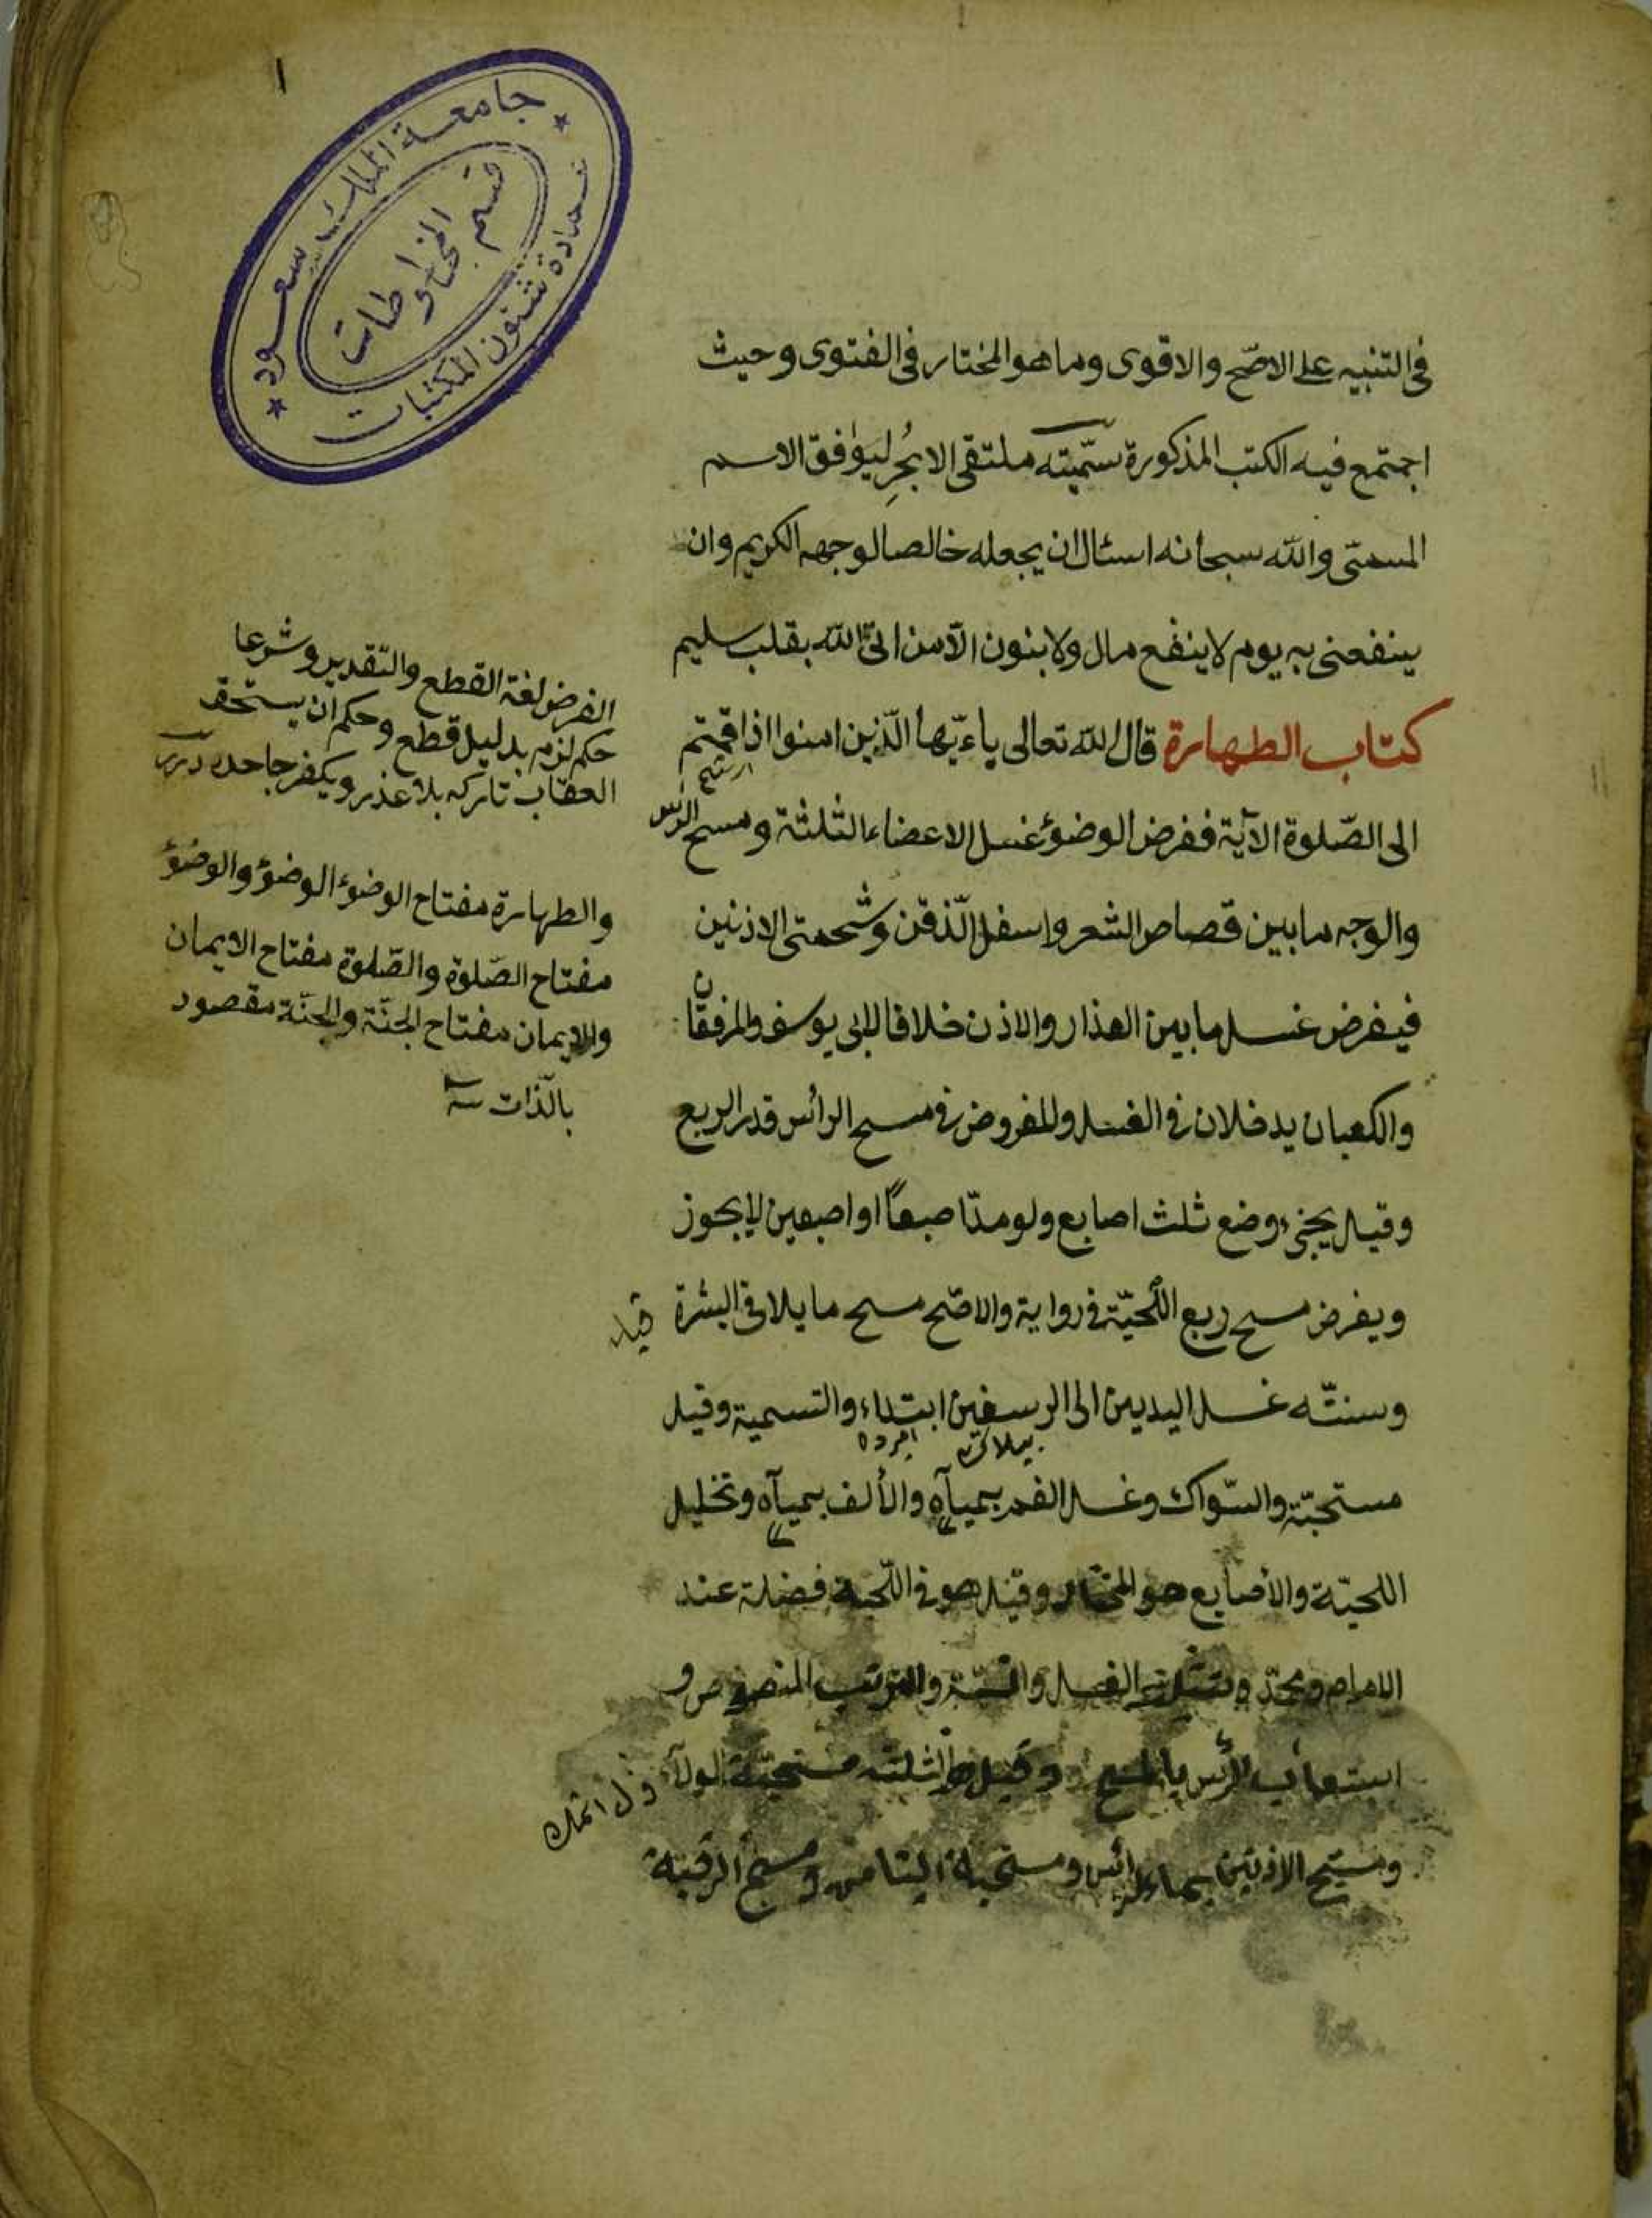 ١
جامعة الملك سعود
قسم المخطوطات
عمادة شئون المكتبات
فى التنبيه على الاصّح والاقوى وما هو المختار فى الفتوى وحيث
اجتمع فيه الكتب المذكورة سمّيته ملتقى الابحُرِ ليوافق الاسم
المسمّى والله سبحانه اسئال ان يجعله خالصا لوجهه الكريم وان
ينفعنى به يوم لا ينفع مال ولا بنون الّا من اتى الله بقلب سليم
كتاب الطهارة قال الله تعالى ياءيّها الّذين امنوا اذا قمتم
الى الصّلوة الآية ففرض الوضوٴ غسل الاعضاء الثلثة ومسح الراس
والوجه ما بين قصاص الشعر واسفل الّذقن وشحمتى الاذنين
فيفرض غسل ما بين العذار والاذن خلافا لابى يوسف والمرفقان
والكعبان يدخلان فى الغسل والمفروض فى مسح الرائس قدر الربع
وقيل يجزئ وضع ثلث اصابع ولو مدّ اصبعاً او اصبعين لا يجوز
ويفرض مسح ربع اللّحيّة فى رواية والاصّح مسح ما يلاقى البشرة
وسنتّه غسل اليديين الى الرسغين ابتداء والتسمية وقيل
مستحبّة والسّواك وغسل الفم بمياه والألف بمياه وتخليل
اللحيّة والأصابع هو المختار وقيل هو فى اللّحية فضلة عند
الامام ومحمّد وتثليث الغسل والنيّة والترتيب المنصوص و
استعاب الرئس بالمسح وقيل الثلثه مستحبّة الولآء
ومسح الاذنين بماء الرائس ومستحبة التيامن ومسح الرقبة
الفرض لغة القطع والتّقدير وشرعا
حكم لزم بدليل قطع وحكم ان يستحق
العقاب تاركه بلا عذر ويكفر جاحده درر
والطهارة مفتاح الوضوٴ الوضوٴ والوضوٴ
مفتاح الصّلوة والصّلوة مفتاح الايمان
والايمان مفتاح الجنّة والجنّة مقصود
بالّذات